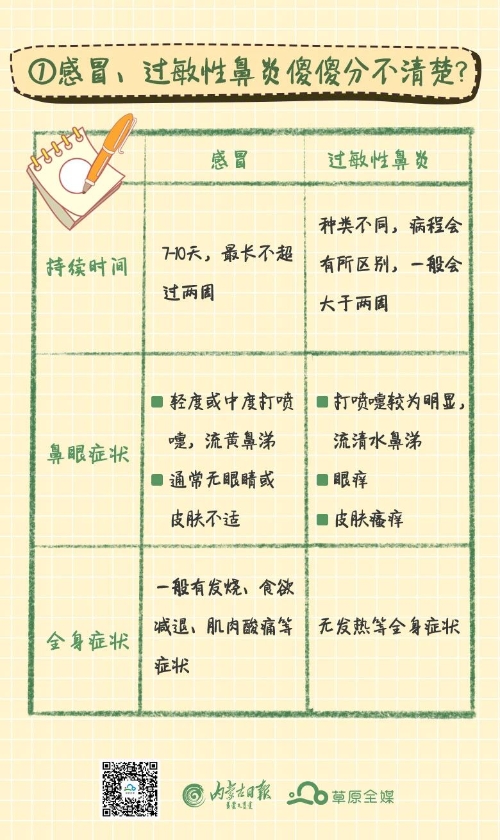 ①感冒、过敏性鼻炎傻傻分不清楚?
感冒
过敏性鼻炎
持续时间
7-10天，最长不超
过两周
种类不同，病程会
有所区别，一般会
大于两周
鼻眼症状
轻度或中度打喷
嚏，流黄鼻涕
通常无眼睛或
皮肤不适
打喷嚏较为明显，
流清水鼻涕
眼痒
皮肤瘙痒
全身症状
一般有发烧、食欲
减退、肌肉酸痛等
症状
无发热等全身症状
内蒙古日报
草原全媒